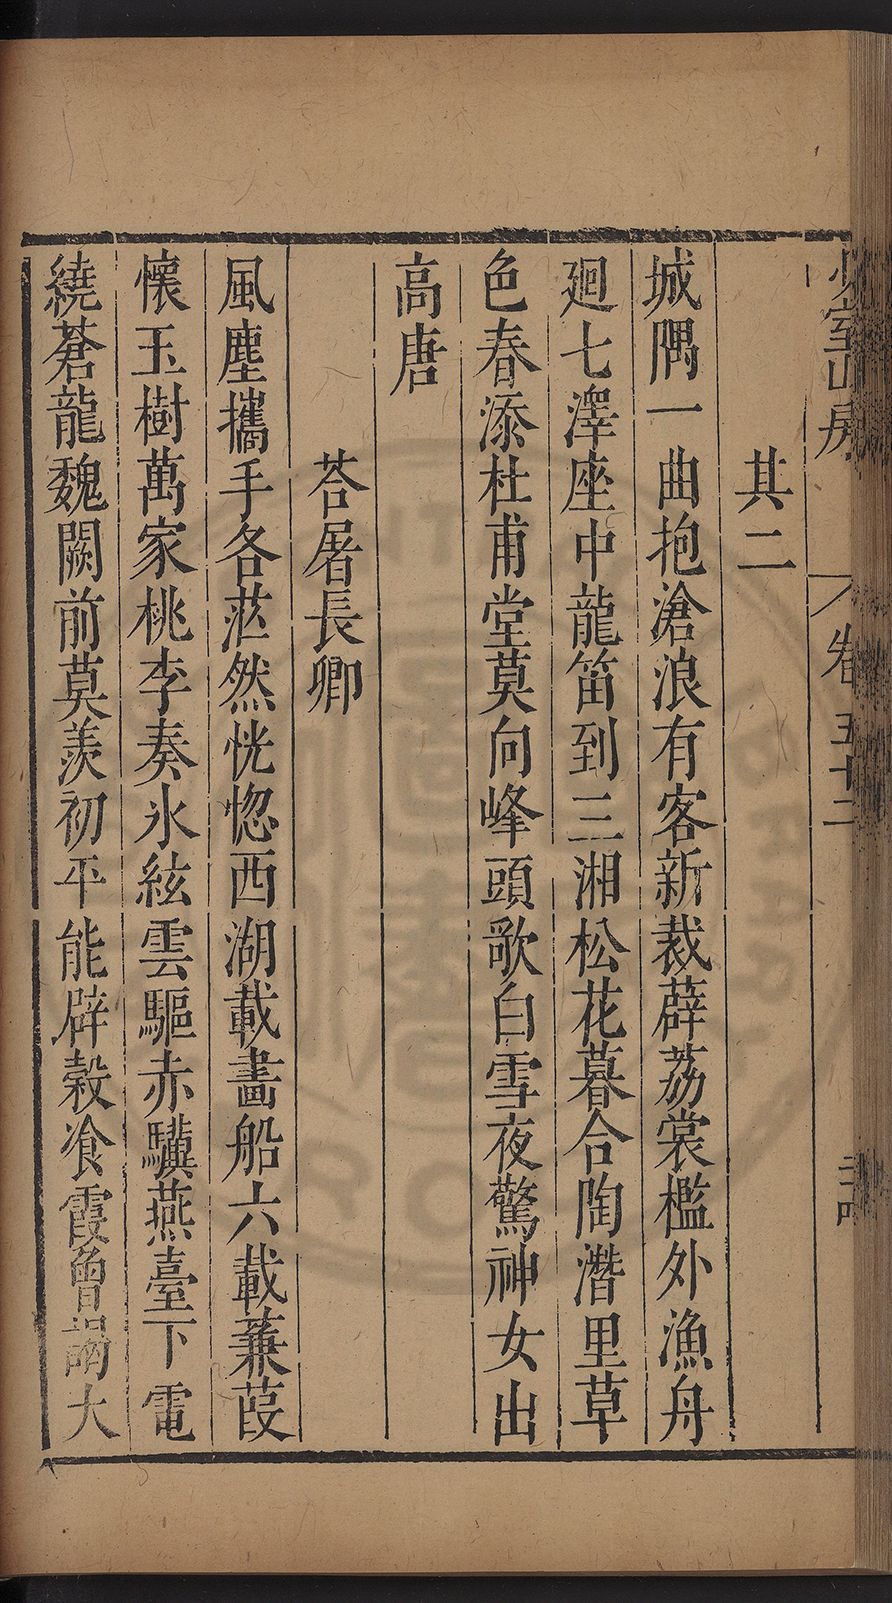 少室山房
卷五十二
二十四
其二
城隅一曲抱滄浪有客新裁薜荔裳檻外漁舟
廻七澤座中龍笛到三湘松花暮合陶潛里草
色春添杜甫堂莫向峰頭歌白雪夜驚神女出
高唐
荅屠長卿
風塵攜手各茫然恍惚西湖載畫船六載蒹葭
懷玉樹萬家桃李奏氷絃雲驅赤驥燕臺下電
繞蒼龍魏闕前莫羨初平能辟穀飡霞曾謁大